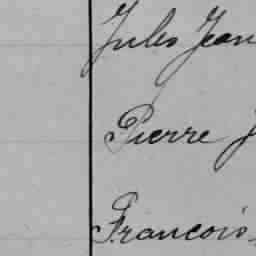 Jules Jean
Pierre J
Francois